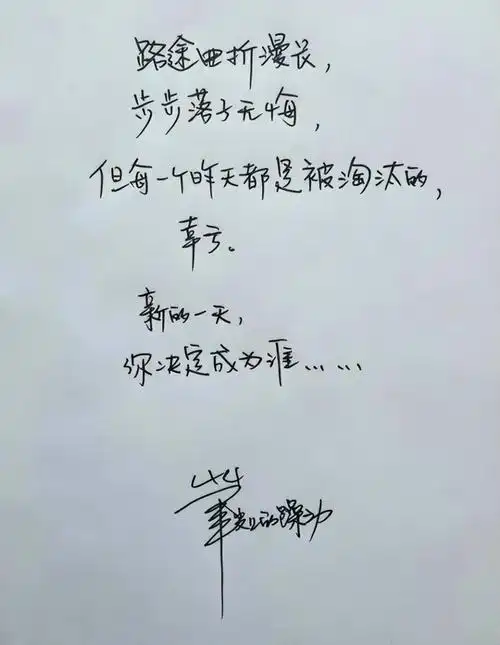 路途曲折漫长，
步步落子无悔，
但每一个昨天都是被淘汰的，
幸亏。
新的一天，
你决定成为谁……
的躁动